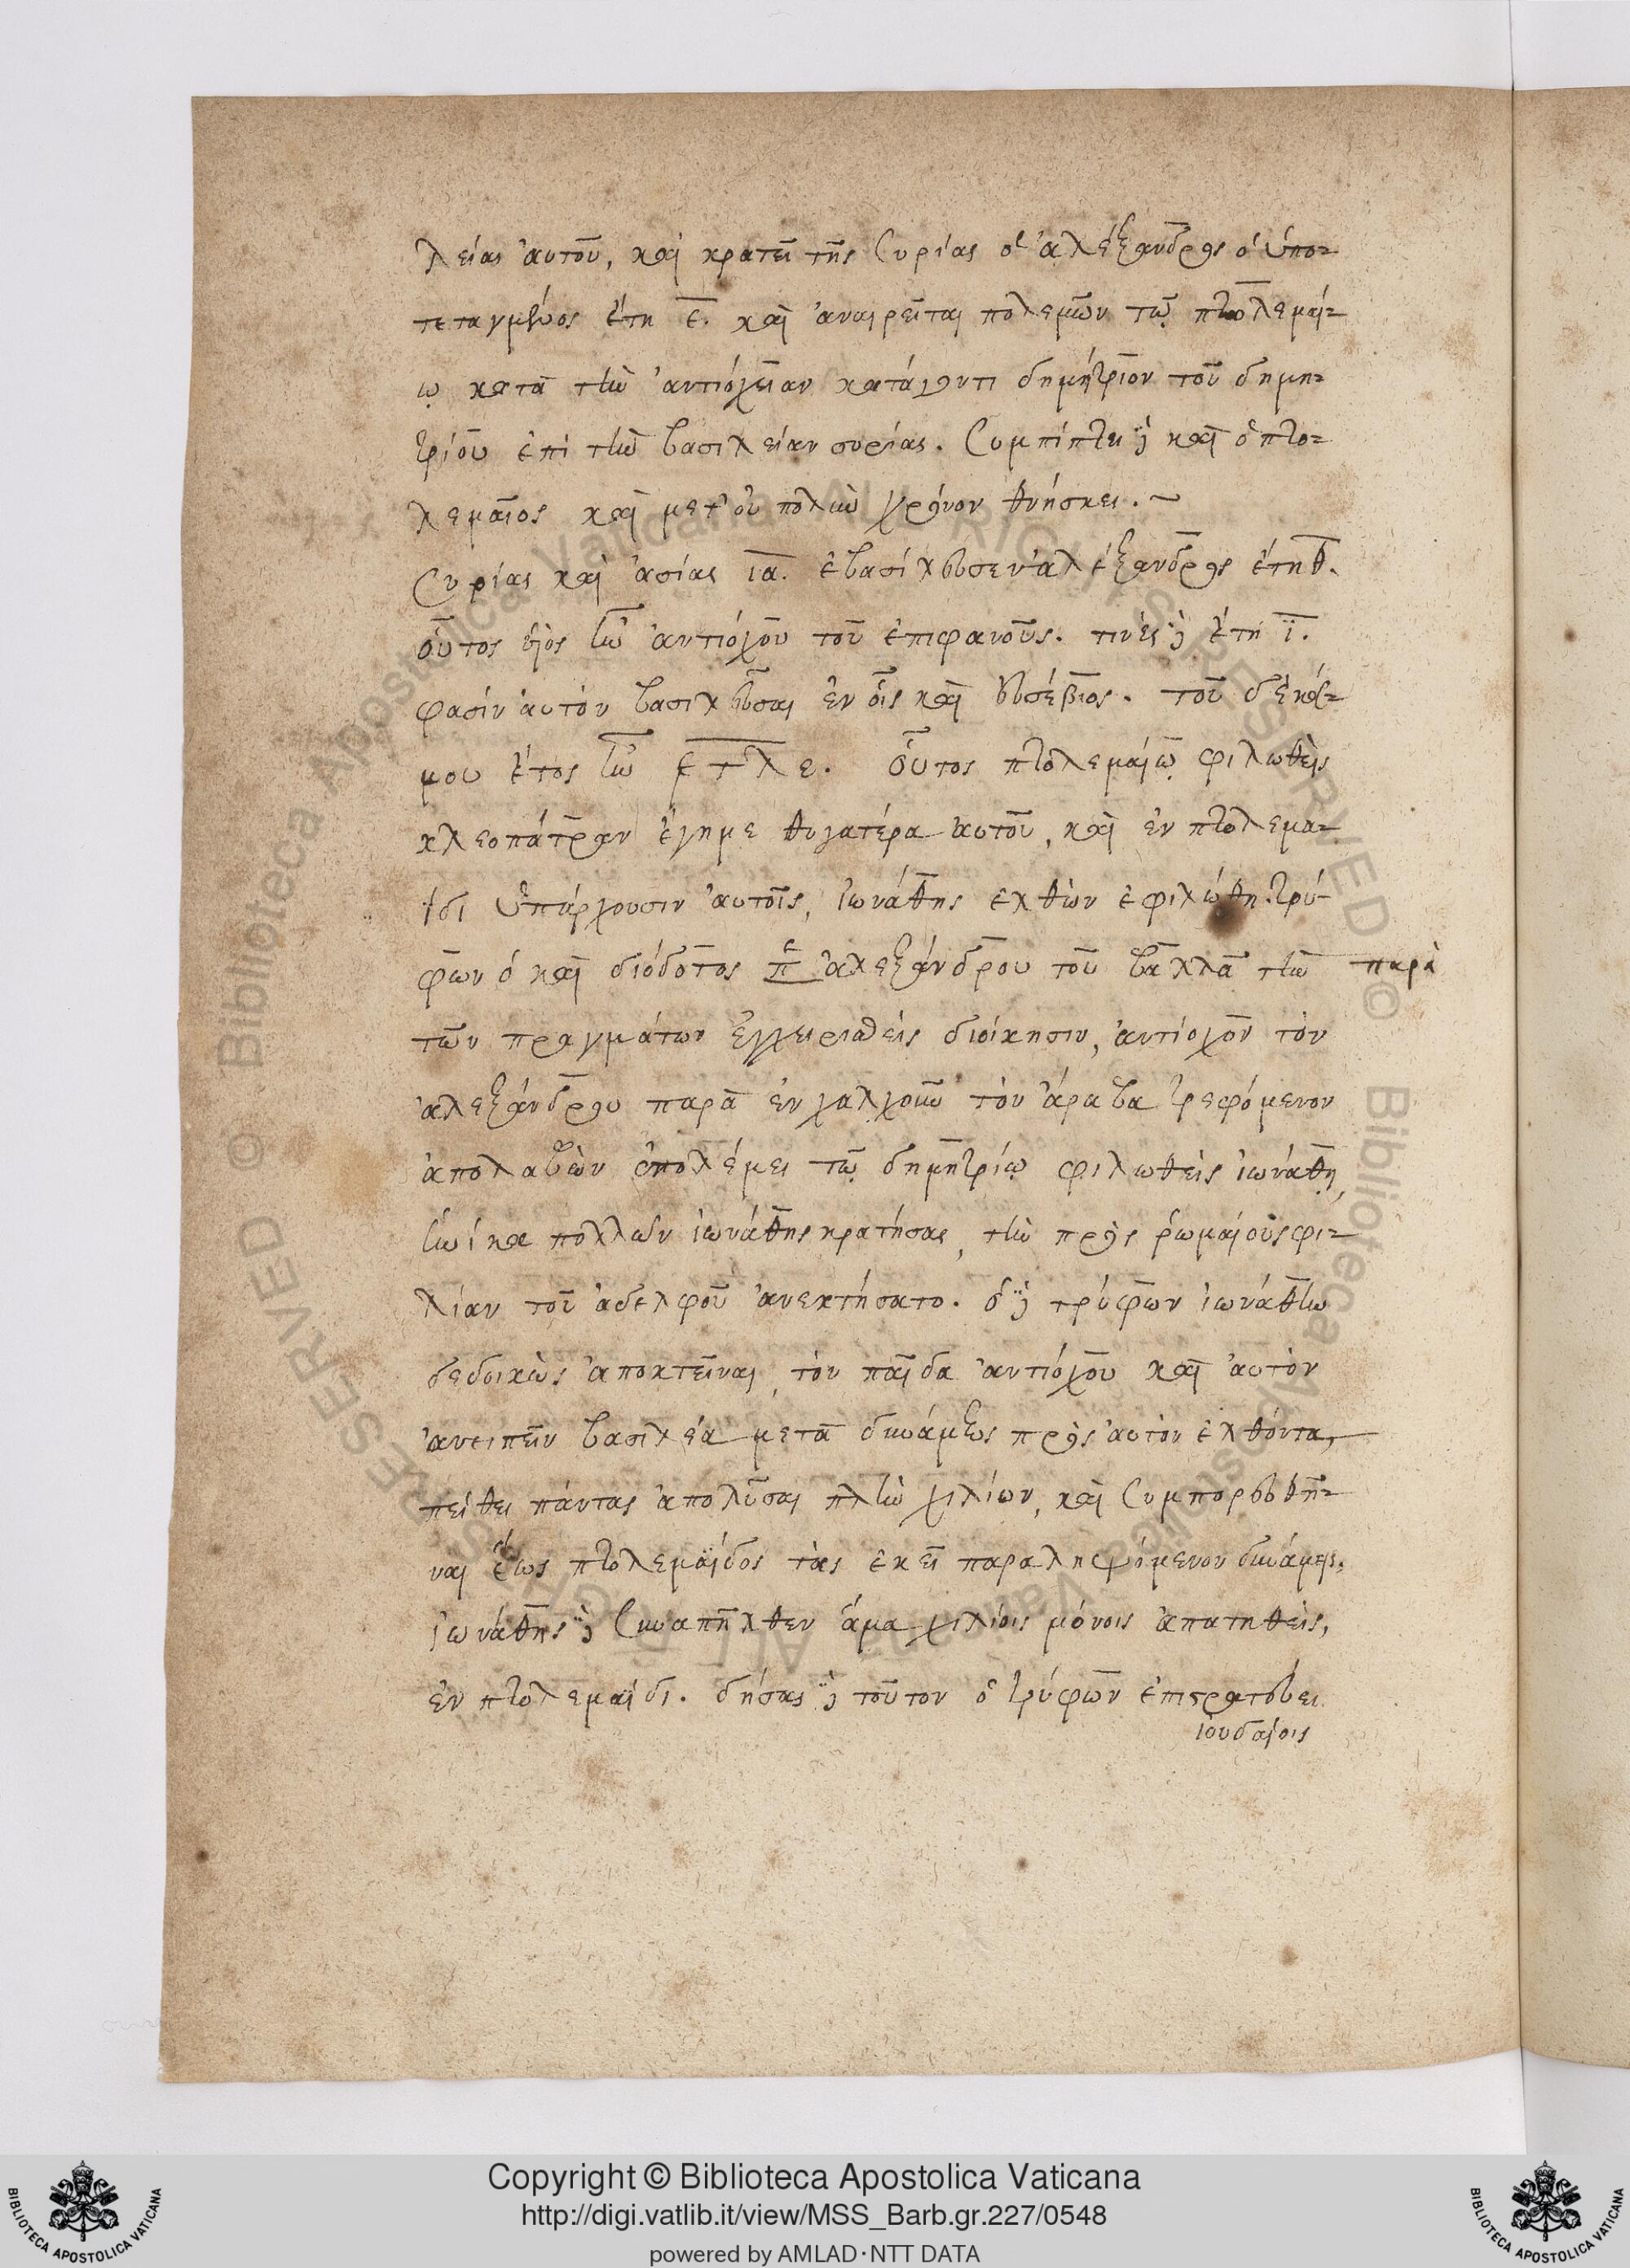 λείας αὐτοῦ, καὶ κρατεῖ τῆς Συρίας ὁ ἀλέξανδρος ὁ ὑπο-
τεταγμένος ἔτη ε̅. καὶ ἀναιρεῖται πολεμῶν τῷ πτολεμαί-
ῳ κατὰ τὴν ἀντιόχειαν κατάγοντι δημήτριον τοῦ δημη-
τρίου ἐπὶ τὴν βασιλείαν συρίας. Συμπίπτει δὲ καὶ ὁ πτο-
λεμαῖος καὶ μετ' οὐ πολὺν χρόνον θνήσκει. ~
Συρίας καὶ ἀσίας ι̅α̅. ἐβασίλευσεν ἀλέξανδρος ἔτη θ̅.
οὗτος υἱὸς ἦν ἀντιόχου τοῦ ἐπιφανοῦς. τινὲς δὲ ἔτη ι̅.
φασὶν αὐτὸν βασιλεῦσαι ἐν οἷς καὶ εὐσέβιος. τοῦ δὲ κό-
μου ἔτος ἦν ͵ε̅τ̅λ̅ε. οὗτος πτολεμαίῳ φιλωθεὶς
κλεοπάτραν ἔγημε θυγατέρα αὐτοῦ, καὶ ἐν πτολεμα-
ΐδι ὑπάρχουσιν αὐτοῖς, ἰωνάθης ἐλθὼν ἐφιλώθη. τρύ-
φων ὁ καὶ διόδοτος π ἀλεξάνδρου τοῦ βαλλᾶ τὴν παρὰ
τῶν πραγμάτων ἐγχειρισθεὶς διοίκησιν, ἀντίοχον τὸν
ἀλεξάνδρου παρὰ ἐν χαλχουὴν τὸν ἄραβα τρεφόμενον
ἀπολαβὼν ἐπολέμει τῷ δημητρίῳ φιλωθεὶς ἰωνάθῃ,
ἡνίκα πολλῶν ἰωνάθης κρατήσας, τὴν πρὸς ῥωμαίους φι-
λίαν τοῦ ἀδελφοῦ ἀνεκτήσατο. ὁ δὲ τρύφων ἰωνάθην
δεδοικὼς ἀποκτεῖναι, τὸν παῖδα ἀντιόχου καὶ αὐτὸν
ἀνειπεῖν βασιλέα μετὰ δυνάμεως πρὸς αὐτὸν ἐλθόντα,
πείθει πάντας ἀπολῦσαι πλὴν χιλίων, καὶ Συμπορευθῆ-
ναι ἕως πτολεμαΐδος τὰς ἐκεῖ παραληψόμενον δυνάμεις.
ἰωνάθης δὲ Συναπῆλθεν ἅμα χιλίοις μόνοις ἀπατηθείς,
ἐν πτολεμαΐδι. δήσας δὲ τοῦτον ὁ τρύφων ἐπιστρατεύει
ἰουδαίοις
Copyright © Biblioteca Apostolica Vaticana
http://digi.vatlib.it/view/MSS_Barb.gr.227/0548
powered by AMLAD·NTT DATA
BIBLIOTECA APOSTOLICA VATICANA
BIBLIOTECA APOSTOLICA VATICANA